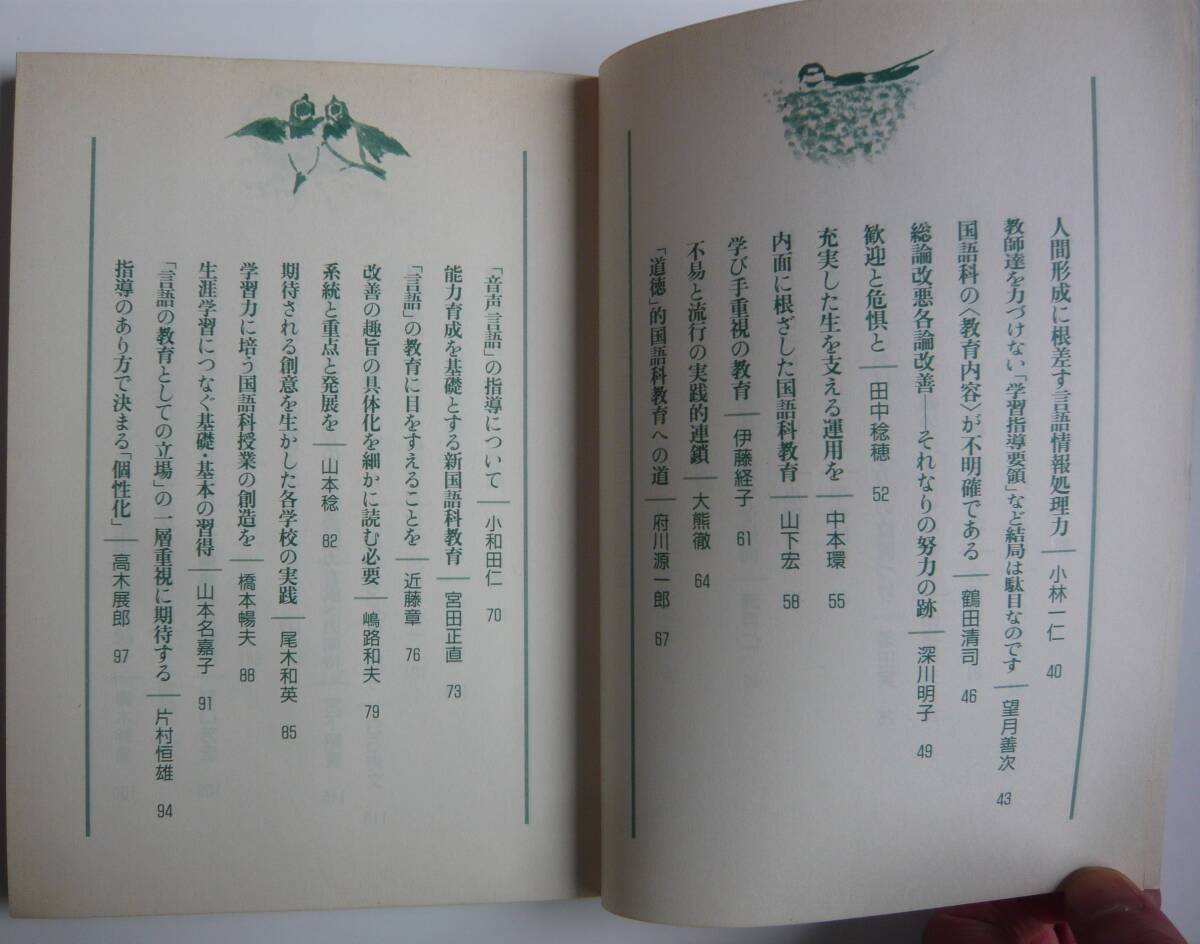 人間形成に根差す言語情報処理力――小林一仁 40
教師達を力づけない「学習指導要領」など結局は駄目なのです――望月善次 43
国語科の〈教育内容〉が不明確である――鶴田清司 46
総論改悪各論改善――それなりの努力の跡――深川明子 49
歓迎と危惧と――田中稔穂 52
充実した生を支える運用を――中本環 55
内面に根ざした国語科教育――山下宏 58
学び手重視の教育――伊藤経子 61
不易と流行の実践的連鎖――大熊徹 64
「道徳」的国語科教育への道――府川源一郎 67
「音声言語」の指導について――小和田仁 70
能力育成を基礎とする新国語科教育――宮田正直 73
「言語」の教育に目をすえることを――近藤章 76
改善の趣旨の具体化を細かに読む必要――嶋路和夫 79
系統と重点と発展を――山本稔 82
期待される創意を生かした各学校の実践――尾木和英 85
学習力に培う国語科授業の創造を――橋本暢夫 88
生涯学習につなぐ基礎・基本の習得――山本名嘉子 91
「言語の教育としての立場」の一層重視に期待する――片村恒雄 94
指導のあり方で決まる「個性化」――高木展郎 97